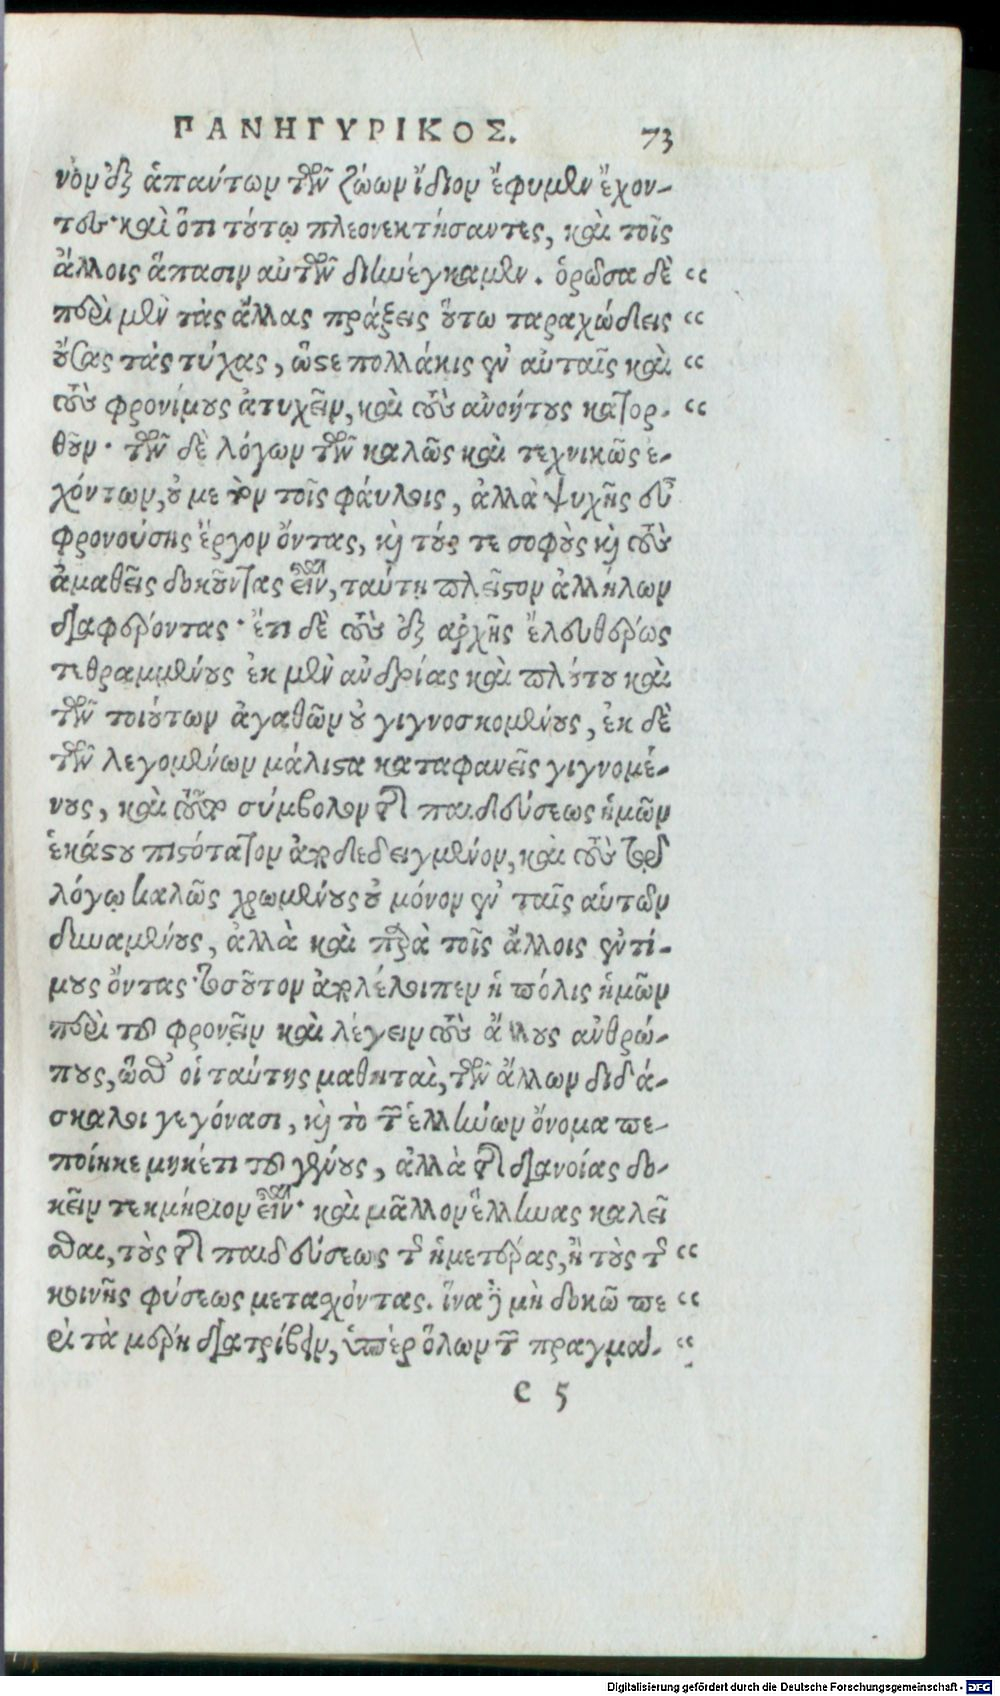 ΠΑΝΗΓΥΡΙΚΟΣ. 73
νὸν ἐξ ἁπάντων τῶν ζώων ἴδιον ἔφυμεν ἔχον-
τες· καὶ ὅτι τούτῳ πλεονεκτήσαντες, καὶ τοῖς
ἄλλοις ἅπασιν αὐτῶν διηνέγκαμεν. ὁρῶσα δὲ “
περὶ μὲν τὰς ἄλλας πράξεις οὕτω ταραχώδεις “
οὔσας τὰς τύχας, ὥστε πολλάκις ἐν αὐταῖς καὶ “
τοὺς φρονίμους ἀτυχεῖν, καὶ τοὺς ἀνοήτους κατορ- “
θοῦν· τῶν δὲ λόγων τῶν καλῶς καὶ τεχνικῶς ἐ-
χόντων, οὐ μετὸν τοῖς φαύλοις, ἀλλὰ ψυχῆς εὖ
φρονούσης ἔργον ὄντας, καὶ τούς τε σοφοὺς καὶ τοὺς
ἀμαθεῖς δοκοῦντας εἶναι, ταύτῃ πλεῖστον ἀλλήλων
διαφέροντας· ἔτι δὲ τοὺς ἐξ ἀρχῆς ἐλευθέρως
τεθραμμένους ἐκ μὲν ἀνδρίας καὶ πλούτου καὶ
τῶν τοιούτων ἀγαθῶν οὐ γιγνοσκομένους, ἐκ δὲ
τῶν λεγομένων μάλιστα καταφανεῖς γιγνομέ-
νους, καὶ τοῦτο σύμβολον τῆς παιδεύσεως ἡμῶν
ἑκάστου πιστότατον ἀποδεδειγμένον, καὶ τοὺς τῷ
λόγῳ καλῶς χρωμένους οὐ μόνον ἐν ταῖς αὑτῶν
δυναμένους, ἀλλὰ καὶ παρὰ τοῖς ἄλλοις ἐντί-
μους ὄντας· τοσοῦτον ἀπολέλοιπεν ἡ πόλις ἡμῶν
περὶ τὸ φρονεῖν καὶ λέγειν τοὺς ἄλλους ἀνθρώ-
πους, ὥσθ᾽ οἱ ταύτης μαθηταὶ, τῶν ἄλλων διδά-
σκαλοι γεγόνασι, καὶ τὸ τῶν ἑλλήνων ὄνομα πε-
ποίηκε μηκέτι τοῦ γένους, ἀλλὰ τῆς διανοίας δο-
κεῖν τεκμήριον εἶναι· καὶ μᾶλλον ἕλληνας καλεῖ
σθαι, τοὺς τῆς παιδεύσεως τῆς ἡμετέρας, ἢ τοὺς τῆς “
κοινῆς φύσεως μετασχόντας. ἵνα δὲ μὴ δοκῶ πε “
ρὶ τὰ μέρη διατρίβειν, ὑπὲρ ὅλων τῶν πραγμά- “
c 5
Digitalisierung gefördert durch die Deutsche Forschungsgemeinschaft - DFG